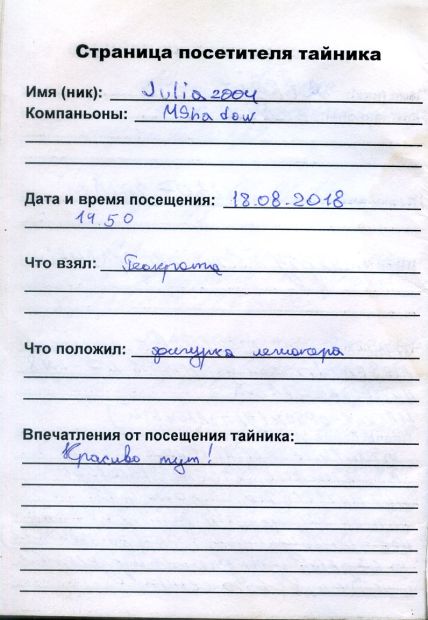 Страница посетителя тайника
Имя (ник): Julia2004
Компаньоны: MShadow
Дата и время посещения: 18.08.2018
14.50
Что взял: Геокрота
Что положил: фигурка
Впечатления от посещения тайника:
Красиво тут!